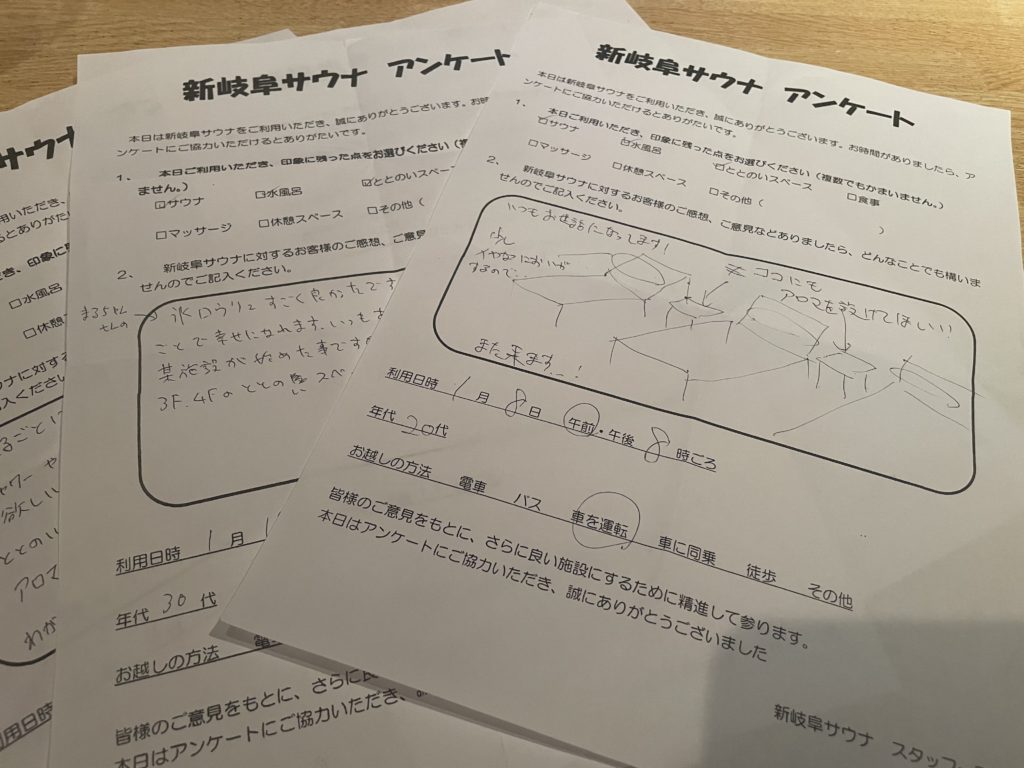 新岐阜サウナ アンケート
本日は新岐阜サウナをご利用いただき、誠にありがとうございます。お時間がありましたら、ア
ンケートにご協力いただけるとありがたいです。
1、 本日ご利用いただき、印象に残った点をお選びください（複数でもかまいません。）
サウナ 水風呂 ととのいスペース 食事
マッサージ 休憩スペース その他（ ）
2、 新岐阜サウナに対するお客様のご感想、ご意見などありましたら、どんなことでも構いま
せんのでご記入ください。
いつもお世話になってます!
少し
イヤなにおいが
するので…
ココにも
アロマを設けてほしい!!
また来ます…!
利用日時 1月 8日 午前・午後 8 時ごろ
年代 20代
お越しの方法 電車 バス 車を運転 車に同乗 徒歩 その他
皆様のご意見をもとに、さらに良い施設にするために精進して参ります。
本日はアンケートにご協力いただき、誠にありがとうございました
新岐阜サウナ スタッフ
新岐阜サウナ アンケート
本日は新岐阜サウナをご利用いただき、誠にありがとうございます。お時
ンケートにご協力いただけるとありがたいです。
1、 本日ご利用いただき、印象に残った点をお選びください（複
ません。）
サウナ 水風呂 ととのいスペース
マッサージ 休憩スペース その他（
2、 新岐阜サウナに対するお客様のご感想、ご意見
せんのでご記入ください。
氷ロウリュすごく良かったです
ことで幸せになれます。いつも
某施設が始めた事ですが
3F.4Fのととの思いスペ
利用日時 1月 1
年代 30代
お越しの方法 電
皆様のご意見をもとに、さらに良
本日はアンケートにご協力いただき、
サウナ
利用いただき、
とありがたい
ただき、印象に
水風呂
休憩
に対する
ください
るごと
シャワー や
欲しい
ととのい
アロマ
わが
利用日時